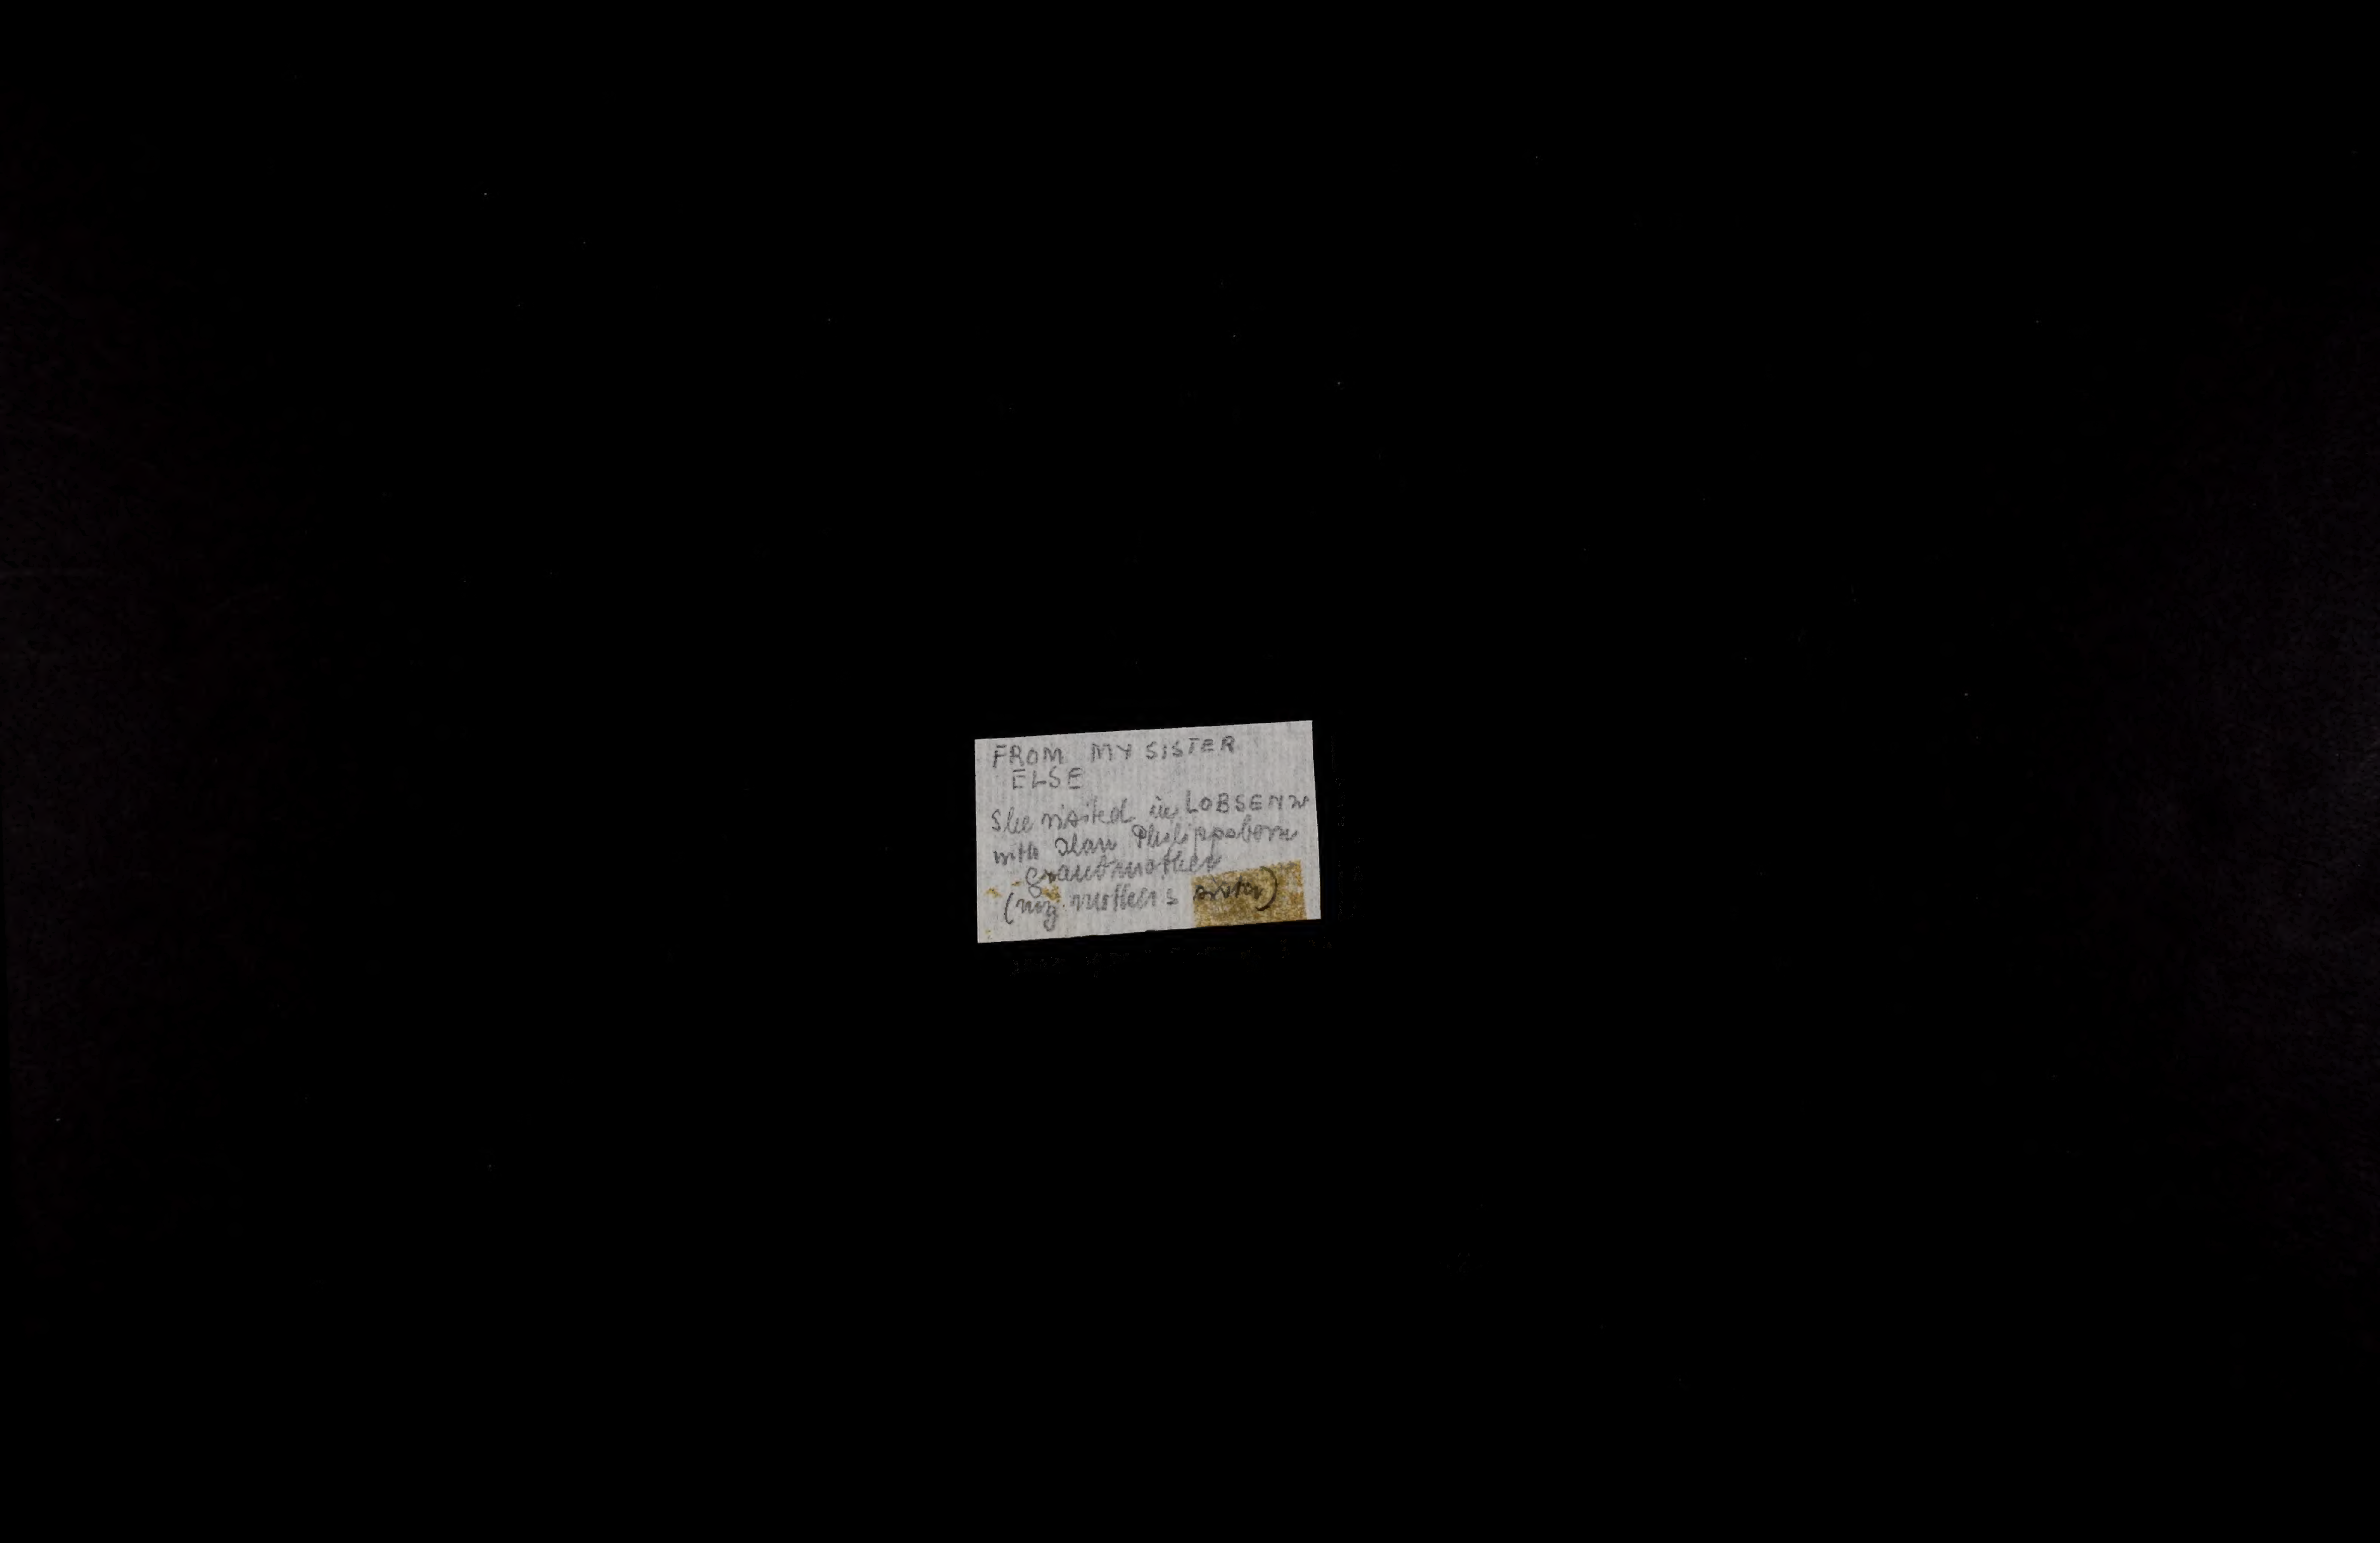 FROM MY SISTER
ELSE
She visited in LOBSENZ
with Philippsborn
Grandmother
(my mother's sister)